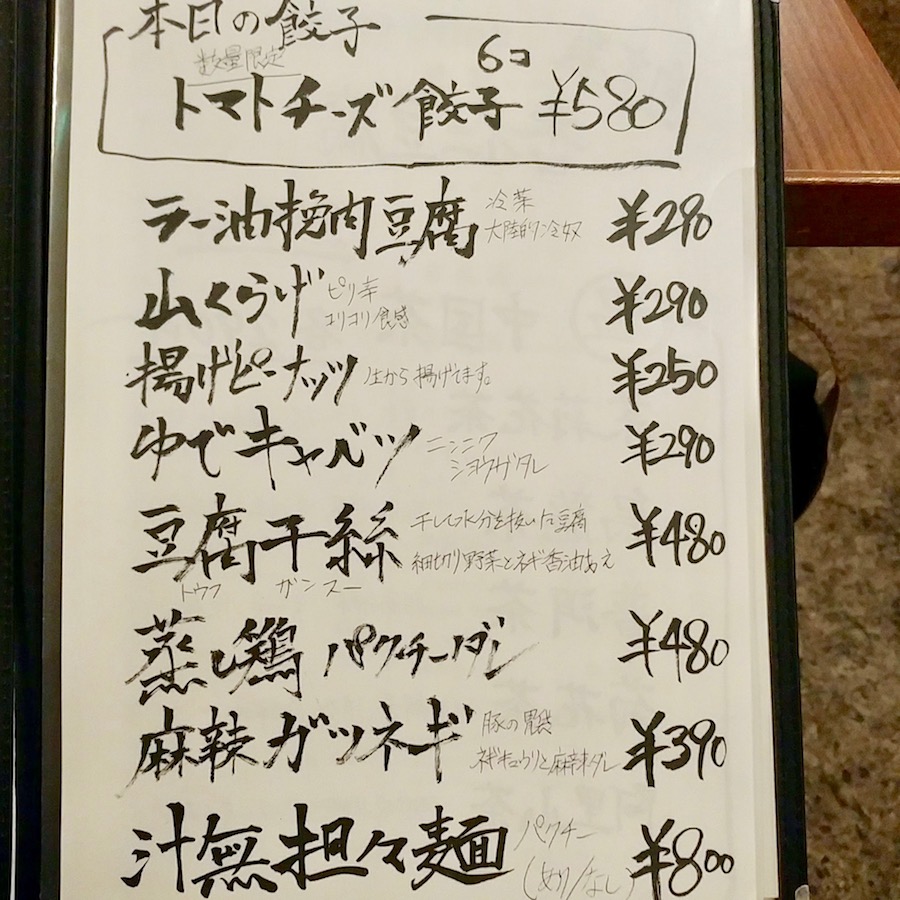 本日の餃子
数量限定
トマトチーズ餃子 6コ ¥580
ラー油挽肉豆腐 冷菜 ¥290
大陸的冷奴
山くらげ ピリ辛 ¥290
コリコリ食感
揚げピーナッツ 生から揚げてます。 ¥250
ゆでキャベツ ニンニク ¥290
ショウガタレ
豆腐干絲 干して水分を抜いた豆腐 ¥480
トウフ ガンスー 細切り野菜とネギ香油あえ
蒸し鶏 パクチーダレ ¥480
麻辣ガツネギ 豚の胃袋 ¥390
ネギキュウリと麻辣ダレ
汁無担々麺 パクチー ¥800
(あり/なし)